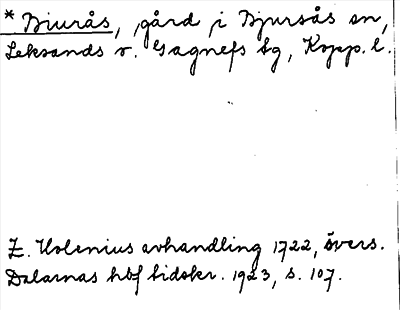 * Biurås, gård i Bjursås sn,
Leksands o. Gagnefs tg, Kopp. l.
Z. Holenius avhandling 1722, övers.
Dalarnas hbf tidskr. 1923, s. 107.